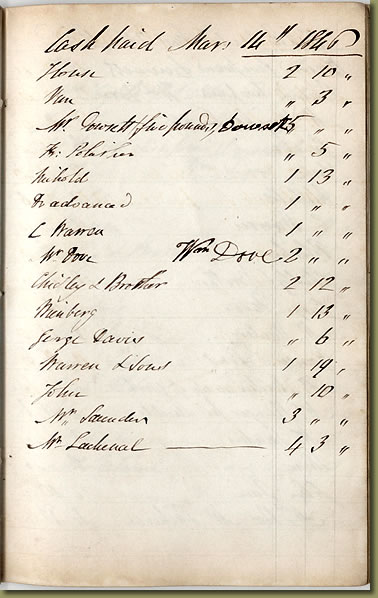 Cash Paid Mar: 14th 1846
House 2 10 "
Van " 3 "
Mr. Dowsett five pounds, Dowsett 5 " "
" 5 "
1 13 "
advanced 1 " "
C Warren 1 " "
Mr Dove Wm Dove 2 " "
Chidley & Brother 2 12 "
Nieberg 1 13 "
George Davis " 6 "
Warren & Sons 1 19 "
John " 10 "
Mr Saunders 3 " "
Mr Lachenal 4 3 "